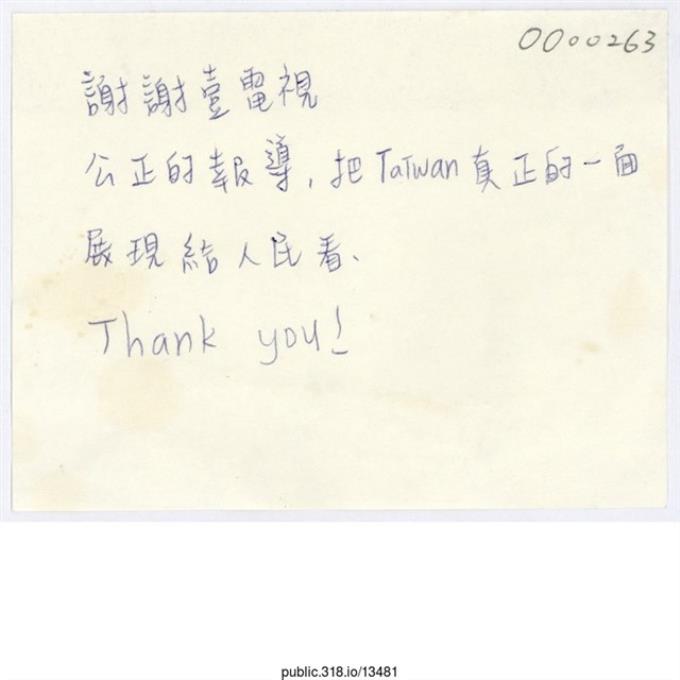 0000263
謝謝壹電視
公正的報導,把Taiwan真正的一面
展現給人民看、
Thank you!
public.318.io/13481